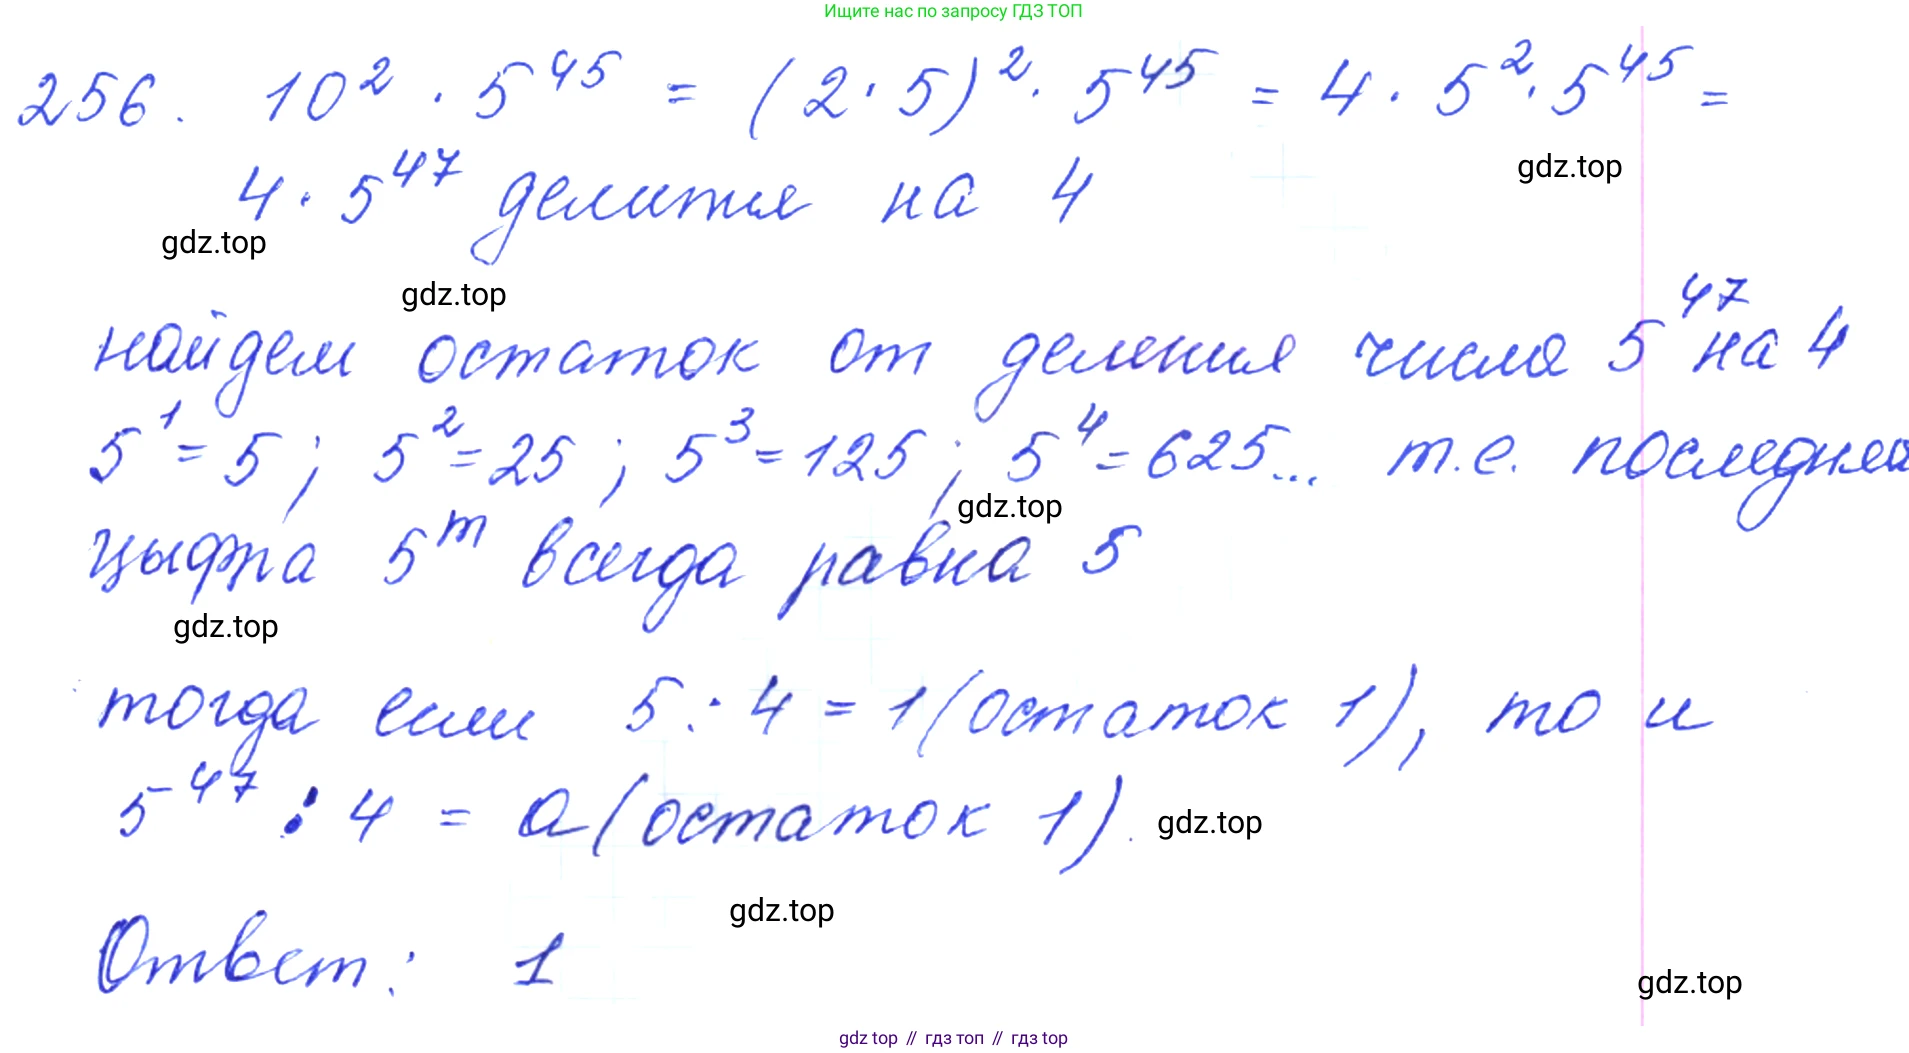 Ищите нас по запросу ГДЗ ТОП
256. 10² · 5⁴⁵ = (2 · 5)² · 5⁴⁵ = 4 · 5² · 5⁴⁵ =
gdz.top
4 · 5⁴⁷ делится на 4
gdz.top
gdz.top
найдем остаток от деления числа 5⁴⁷ на 4
5¹ = 5; 5² = 25; 5³ = 125; 5⁴ = 625... т.е. последняя
gdz.top
цыфра 5ᵐ всегда равна 5
gdz.top
тогда если 5 : 4 = 1 (остаток 1), то и
5⁴⁷ : 4 = a (остаток 1).
gdz.top
gdz.top
Ответ: 1
gdz.top
gdz top // гдз топ // гдз top